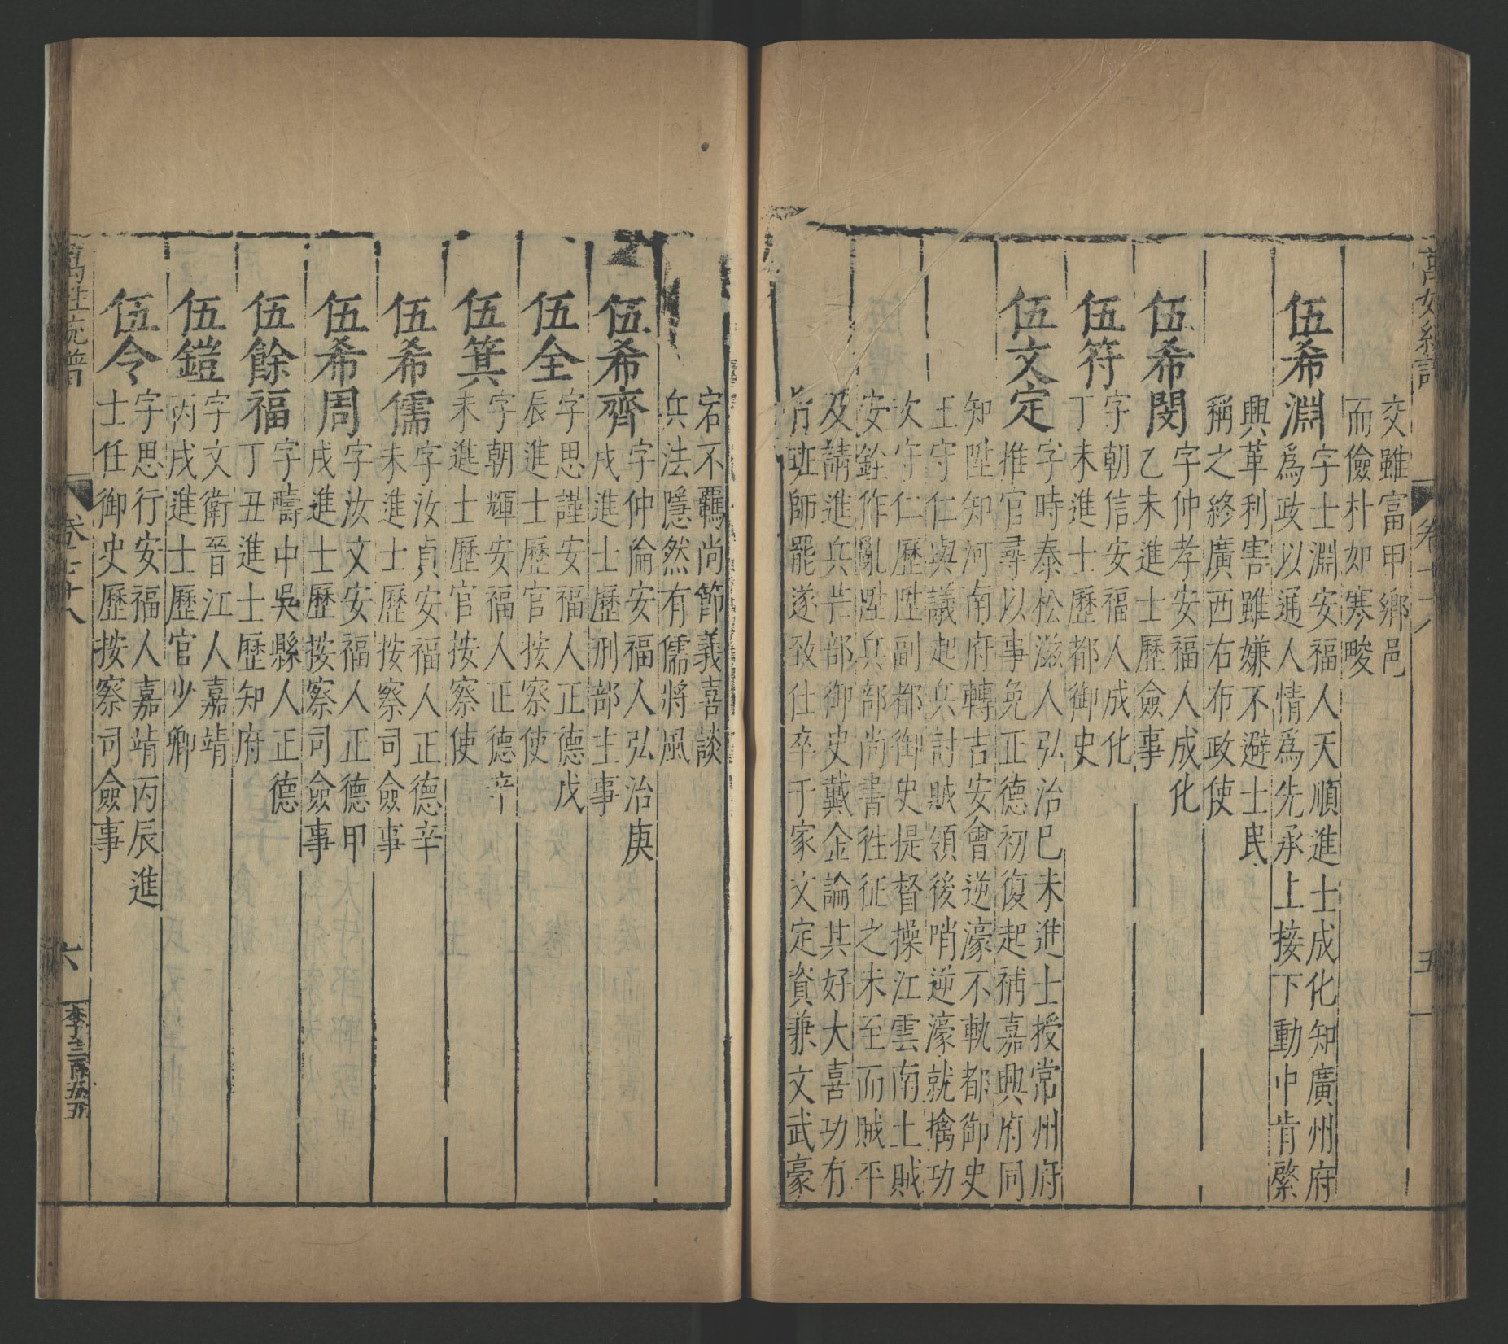 萬姓統譜
卷七十八
五
交雖富甲鄉邑
而儉朴如寒畯
伍希淵
字士淵安福人天順進士成化知廣州府
爲政以通人情爲先承上接下動中肯綮
興革利害雖嫌不避士民
稱之終廣西右布政使
伍希閔
字仲孝安福人成化
乙未進士歷僉事
伍符
字朝信安福人成化
丁未進士歷都御史
伍文定
字時泰松滋人弘治己未進士授常州府
推官尋以事免正德初復起補嘉興府同
知陞知河南府轉吉安會逆濠不軌都御史
王守仁與議起兵討賊領後哨逆濠就擒功
次守仁歷陞副都御史提督操江雲南土賊
安銓作亂陞兵部尚書徃征之未至而賊平
及請進兵芒部御史戴金論其好大喜功有
旨班師罷遂致仕卒于家文定資兼文武豪
宕不羈尚節義喜談
兵法隱然有儒將風
伍希齊
字仲倫安福人弘治庚
戌進士歷刑部主事
伍全
字思謹安福人正德戊
辰進士歷官按察使
伍箕
字朝輝安福人正德辛
未進士歷官按察使
伍希儒
字汝貞安福人正德辛
未進士歷按察司僉事
伍希周
字汝文安福人正德甲
戌進士歷按察司僉事
伍餘福
字疇中吳縣人正德
丁丑進士歷知府
伍鎧
字文衛晉江人嘉靖
丙戌進士歷官少卿
伍令
字思行安福人嘉靖丙辰進
士任御史歷按察司僉事
萬姓統譜
卷七十八
六